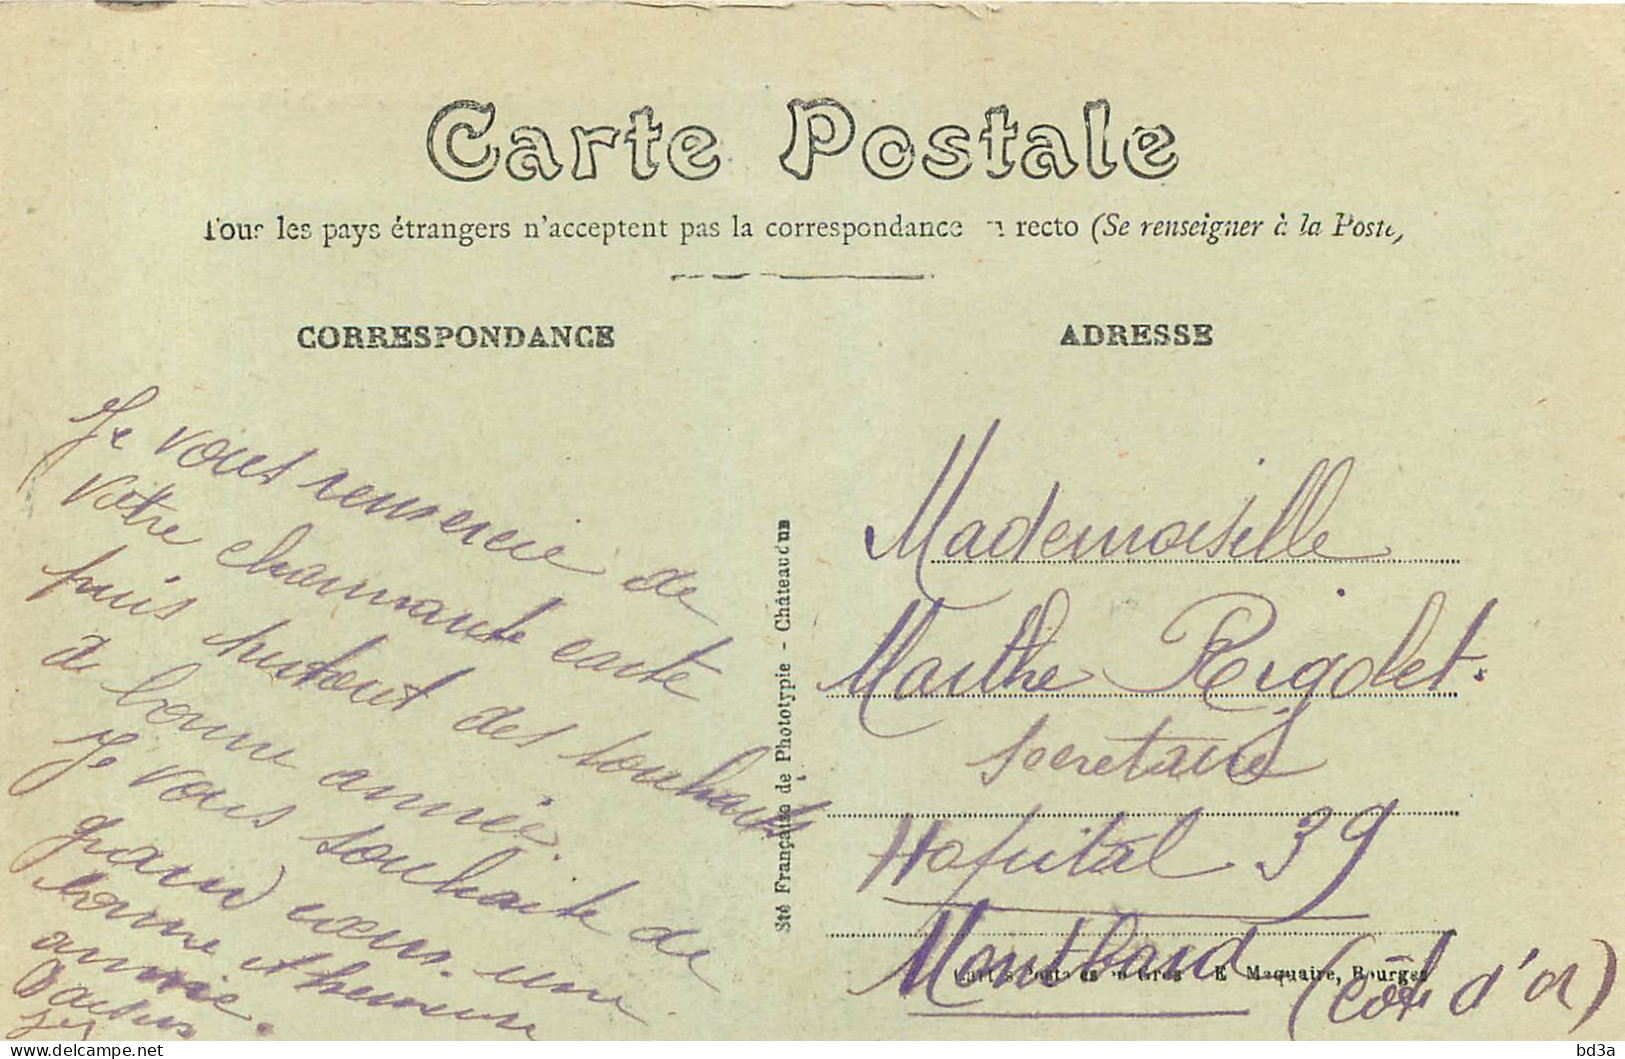 Carte Postale
Tous les pays étrangers n'acceptent pas la correspondance recto (Se renseigner à la Poste)
CORRESPONDANCE
Je vous remercie de
votre charmante carte
puis surtout des souhaits
de bonne année.
Je vous souhaite de
grand cœur une
bonne et heureuse
année.
Sté Française de Phototypie - Châteaudun
ADRESSE
Mademoiselle
Marthe Rigolet.
Secrétaire
Hopital 39
Montbard
(Côte d'or)
Cartes Postales en Gros E Maquaire, Bourges
bd3a